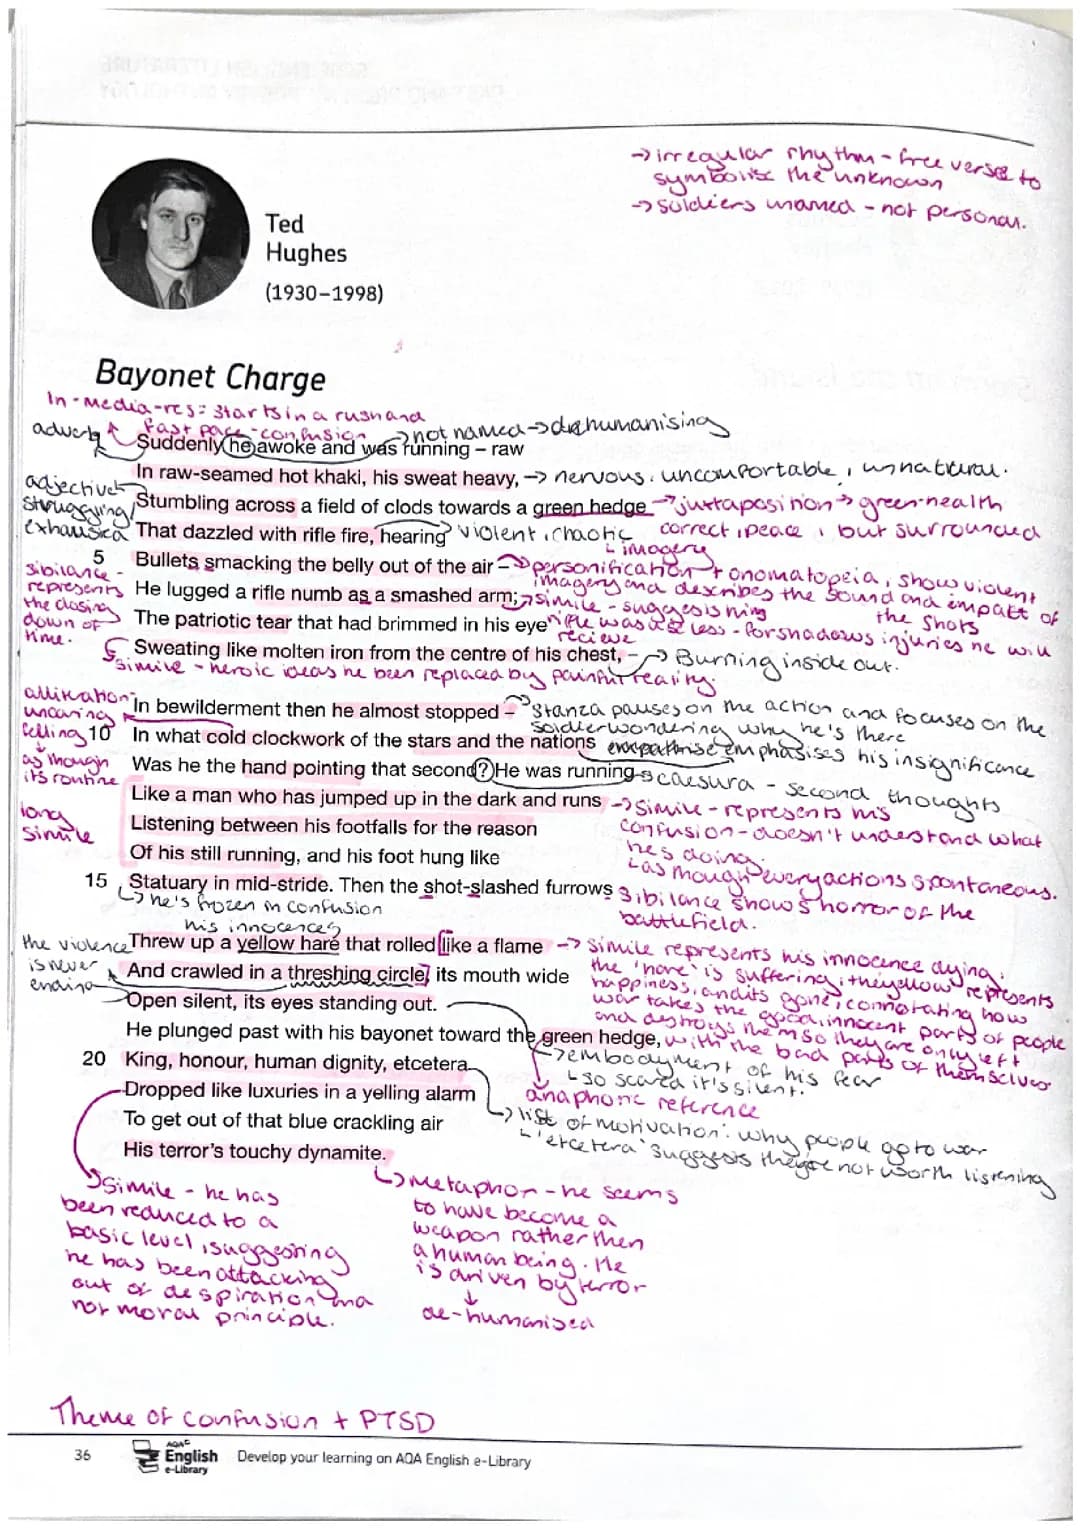 → irregular rhythm - free verse to
symbolise the unknown
→ soldiers unamed - not personal.
Ted
Hughes
(1930–1998)
Bayonet Charge
In-media-res: starts in a rush and
fast pace - confusion
adverb
not named → dehumanising
Suddenly he awoke and was running – raw
In raw-seamed hot khaki, his sweat heavy,
→ nervous, uncomfortable, unnatural.
adjective
struggling/
exhausted
Stumbling across a field of clods towards a green hedge
→ juxtaposition → green-health
correct, peace, but surrounded
That dazzled with rifle fire, hearing
violent, chaotic
↳ imagery
5 Bullets smacking the belly out of the air –
→ personification + onomatopeia, show violent
imagery and describes the sound and impact of
the shots
sibilance -
represents
the closing
down of
time.
He lugged a rifle numb as a smashed arm;
→ simile - suggests
rifle was use less - forshadows injuries he will
recieve
The patriotic tear that had brimmed in his eye
Sweating like molten iron from the centre of his chest, –
→ Burning inside out.
simile - heroic ideas he been replaced by painful reality.
alliteration
uncaring
as though
its routine
In bewilderment then he almost stopped –
Stanza pauses on the action and focuses on the
soldier wondering why he's there
10 In what cold clockwork of the stars and the nations
emphasises his insignificance
Was he the hand pointing that second? He was running
→ caesura - second thoughts
long
simile
Like a man who has jumped up in the dark and runs
→ simile - represents his
confusion - doesn't understand what
he's doing.
↳ as though every actions spontaneous.
Listening between his footfalls for the reason
Of his still running, and his foot hung like
15 Statuary in mid-stride. Then the shot-slashed furrows
↳ he's frozen in confusion
sibilance shows horror of the
battlefield.
his innocence
the violence
is never
ending
Threw up a yellow hare that rolled like a flame
→ simile represents his innocence dying.
the 'hare' is suffering, the yellow represents
happiness, and its gone, connotating how
war takes the good, innocent parts of people
and destroys them so they are only left
with the bad parts of themselves
And crawled in a threshing circle, its mouth wide
Open silent, its eyes standing out.
He plunged past with his bayonet toward the green hedge,
→ embodyment of his fear
↳ so scared it's silent.
anaphoric reference
20 King, honour, human dignity, etcetera
↳ list of motivation: why people go to war
↳ 'etcetera' suggests they're not worth listening
Dropped like luxuries in a yelling alarm
To get out of that blue crackling air
His terror's touchy dynamite.
simile - he has
been reduced to a
basic level, suggesting
he has been attacking
out of despiration and
not moral principle.
↳ metaphor - he seems
to have become a
weapon rather then
a human being. He
is driven by terror
↓
de-humanised
Theme of confusion + PTSD
36
AQA
English
e-Library
Develop your learning on AQA English e-Library